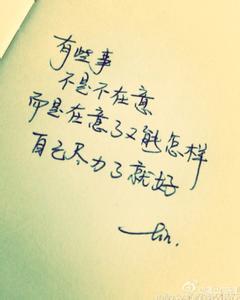 有些事
不是不在意
而是在意了又能怎样
自己尽力了就好
lin.